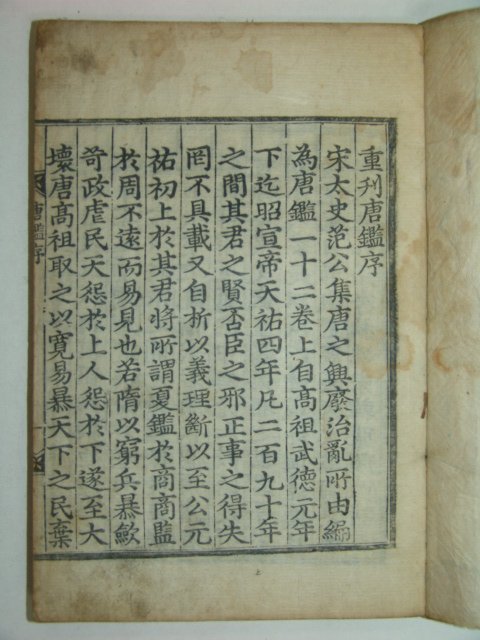 重刊唐鑑序
宋太史范公集唐之興廢治亂所由編
為唐鑑一十二卷上自髙祖武德元年
下迄昭宣帝天祐四年凡二百九十年
之間其君之賢否臣之邪正事之得失
罔不具載又自析以義理斷以至公元
祐初上於其君將所謂夏鑑於商商監
於周不遠而易見也若隋以窮兵暴歛
苛政虐民天怨於上人怨於下遂至大
壞唐髙祖取之以寛易暴天下之民棄
唐鑑序